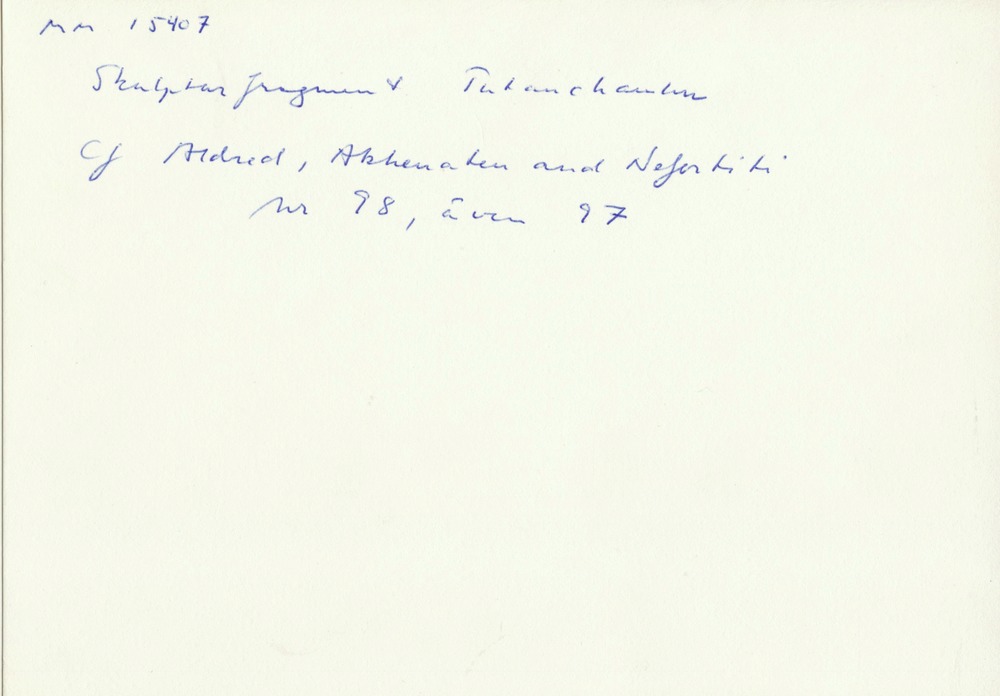 MM 15407
Skulpturfragment Tutanchamun
Cf Aldred, Akhenaten and Nefertiti
nr 98, även 97